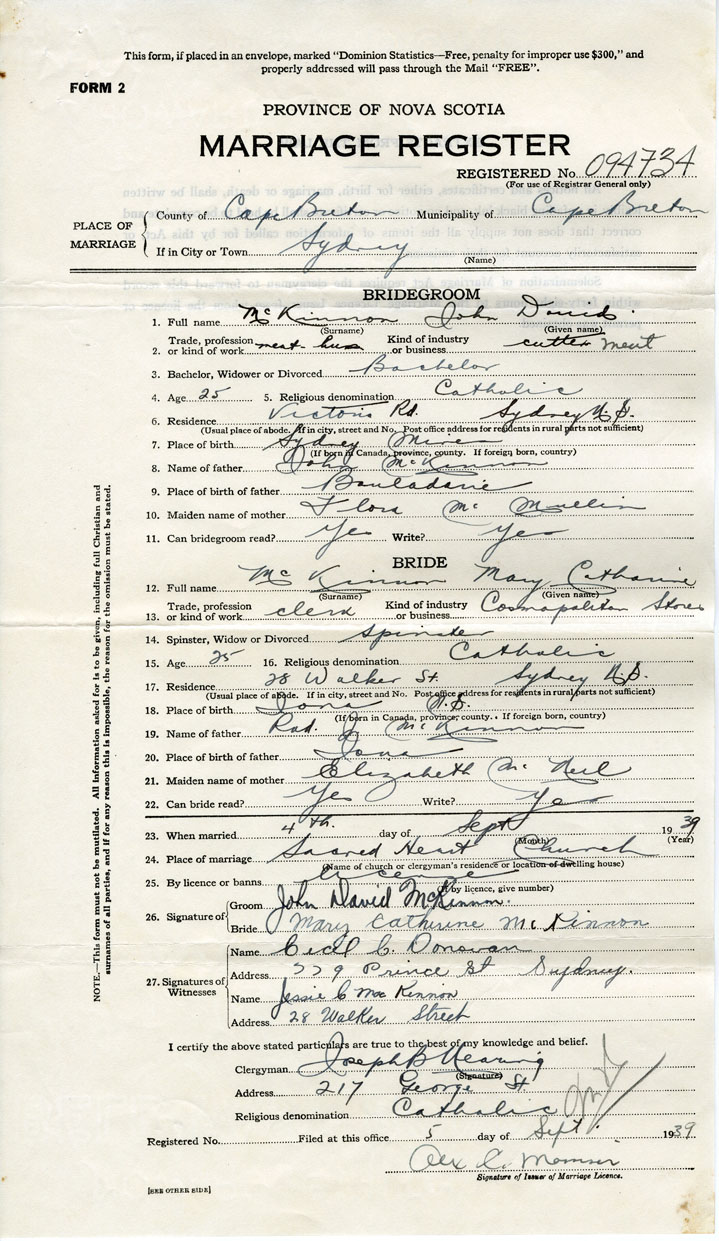 This form, if placed in an envelope, marked "Dominion Statistics—Free, penalty for improper use $300," and
properly addressed will pass through the Mail "FREE".
FORM 2
PROVINCE OF NOVA SCOTIA
MARRIAGE REGISTER
REGISTERED No. 094734
(For use of Registrar General only)
PLACE OF MARRIAGE
County of Cape Breton Municipality of Cape Breton
If in City or Town Sydney
(Name)
BRIDEGROOM
1. Full name McKinnon John David
(Surname) (Given name)
2. Trade, profession or kind of work meat Kind of industry or business cutter meat
3. Bachelor, Widower or Divorced Bachelor
4. Age 25 5. Religious denomination Catholic
6. Residence Victoria Rd. Sydney N.S.
(Usual place of abode. If in city, street and No. Post office address for residents in rural parts not sufficient)
7. Place of birth Sydney Mines
(If born in Canada, province, county. If foreign born, country)
8. Name of father John McKinnon
9. Place of birth of father
10. Maiden name of mother Flora Mc
11. Can bridegroom read? Yes Write? Yes
BRIDE
12. Full name McKinnon Mary Catharine
(Surname) (Given name)
13. Trade, profession or kind of work clerk Kind of industry or business Cosmopolitan Stores
14. Spinster, Widow or Divorced Spinster
15. Age 25 16. Religious denomination Catholic
17. Residence 28 Walker St. Sydney N.S.
(Usual place of abode. If in city, street and No. Post office address for residents in rural parts not sufficient)
18. Place of birth Iona N.S.
(If born in Canada, province, county. If foreign born, country)
19. Name of father Rod. J. McKinnon
20. Place of birth of father Iona
21. Maiden name of mother Elizabeth McNeil
22. Can bride read? Yes Write? Yes
23. When married 4th. day of Sept 1939
(Month) (Year)
24. Place of marriage Sacred Heart Church
(Name of church or clergyman's residence or location of dwelling house)
25. By licence or banns licence
(If by licence, give number)
26. Signature of
Groom John David McKinnon.
Bride Mary Catherine McKinnon
27. Signatures of Witnesses
Name Cecil C. Donovan
Address 779 Prince St Sydney.
Name Jessie C MacKinnon
Address 28 Walker Street
I certify the above stated particulars are true to the best of my knowledge and belief.
Clergyman Joseph B Kearney
(Signature)
Address 217 George St
Religious denomination Catholic
Registered No. Filed at this office 5 day of Sept. 1939
Alex C.
Signature of Issuer of Marriage Licence.
[SEE OTHER SIDE]
NOTE.—This form must not be mutilated. All information asked for is to be given, including full Christian and
surnames of all parties, and if for any reason this is impossible, the reason for the omission must be stated.